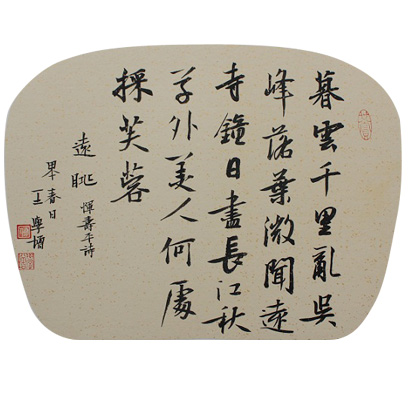 暮雲千里亂吳
峰落葉微聞遠
寺鐘日盡長江秋
草外美人何處
採芙蓉
遠眺 惲壽平詩
春日
王學